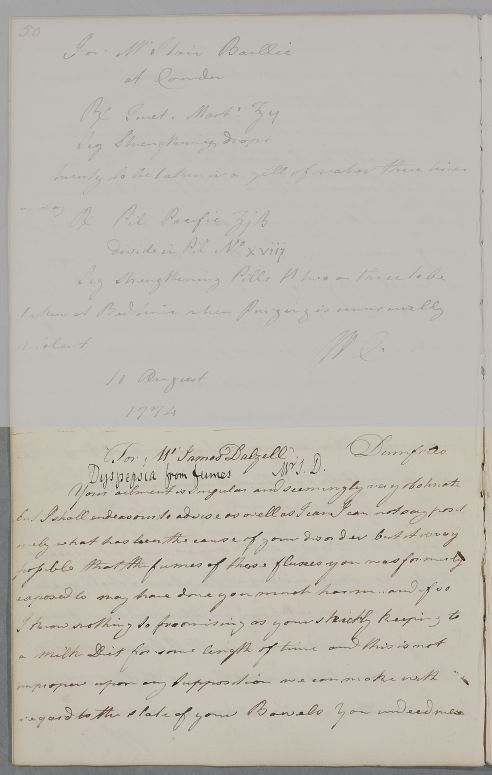 50
For Mr Stair Baillie
at Cowden
Rx Tinct. Mart. ʒij
Sig Strengthening drops
twenty to be taken in a gill of water three times
a day
Rx Pil Pacific ʒjß
divide in Pil No xviij
Sig Strengthening Pills two or three to be
taken at Bed time when Purging is unusually
violent
W C
10 August
1774
For Mr James Dalzell Dumfries
Dyspepsia from fumes Mr J. D.
Your ailment is singular and seemingly very obstinate
but I shall endeavour to advise as well as I can I can not say posi
tively what has been the cause of your disorder but it is very
possible that the fumes of those fluxes you was formerly
exposed to may have done you much harm and if so
I know nothing so promising as your strictly keeping to
a Milk Diet for some length of time and this is not
improper upon any supposition we can make with
regard to the state of your Bowels You indeed